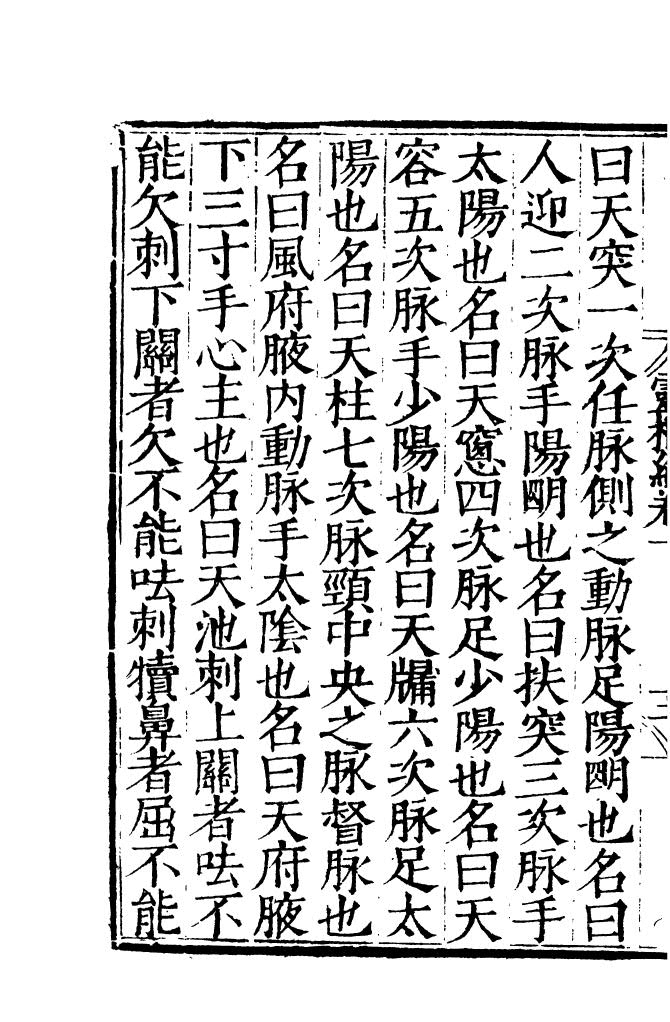 曰天突一次任脉側之動脉足陽明也名曰
人迎二次脉手陽明也名曰扶突三次脉手
太陽也名曰天窻四次脉足少陽也名曰天
容五次脉手少陽也名曰天牖六次脉足太
陽也名曰天柱七次脉頸中央之脉督脉也
名曰風府腋内動脉手太陰也名曰天府腋
下三寸手心主也名曰天池刺上關者呿不
能欠刺下關者欠不能呿刺犢鼻者屈不能